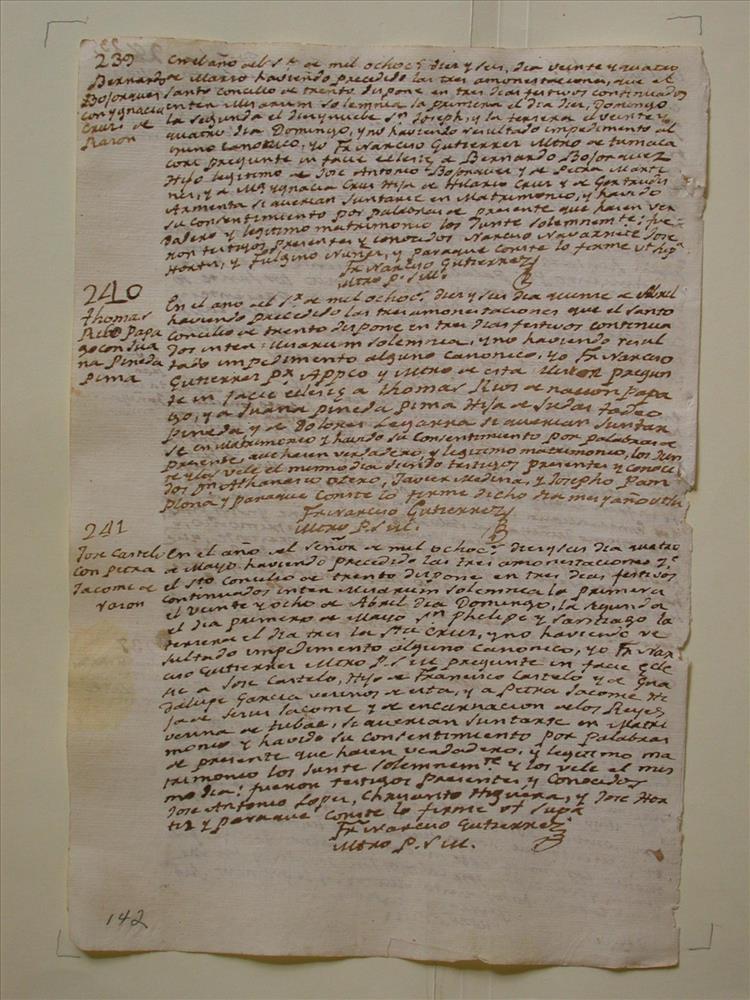 239
Bernardo
Bojorquez
con ygnacia
Cruz de
Razon
En el año del Sr. de mil ochocs. diez y seis, dia veinte y quatro
de Marzo haviendo precedido las tres amonestaciones, que el
Santo concilio de trento dispone en tres dias festivos continuados
inten Missarum Solemnia la primera el dia diez, Domingo
la segunda el diez y nueve Sn. Joseph, y la tersera el veinte y
quatro dia Domingo, y no haviendo resultado impedimento al
guno canonico, yo Fr. Narciso Gutierrez Mtro de tumaca
cori pregunte in facie eclesie a Bernardo Bojorquez
Hijo legitimo de Jose Antonio Bojorquez y de Petra Marti
nez, y a Ma. ygnacia Cruz Hija de Hilario Cruz y de Gertrudis
Armenta si querian Juntarse en Matrimonio, y havido
su consentimiento por palabras de presente que hacen ver
dadero y legitimo matrimonio los Junte solemnemte; fue
ron testigos presentes y conocidos Narciso Navarrete Jose
Hortiz, y Fulgino Nuñez, y paraque conste lo firme ut supa.
Fr. Narciso Gutierrez
Mtro P. S. M.
240
thomas
Rios Papa
go con Jua
na Pineda
Pima
En el año del Sr. de mil ochocs. diez y seis dia quinse de Abril
haviendo precedido las tres amonestaciones que el santo
Concilio de trento dispone en tres dias festivos continua
dos inten Missarum solemnia, y no haviendo resul
tado impedimento alguno canonico, yo Fr. Narciso
Gutierrez Pr. Appco y Mtro de esta Mision pregun
te in facie eclesie a thomas Rios de nacion Papa
go, y a Juana Pineda Pima Hija de Judas tadeo
Pineda y de Dolores si querian Juntar
se en Matrimonio y havido su consentimiento por palabras de
presente, que hacen verdadero, y legitimo matrimonio, los Jun
te y los vele el mismo dia siendo testigos presentes y conoci
dos Dn. Athanacio otero, Javier Medina, y Josepho Pam
plona y paraque conste lo firme dicho dia mes y año ut su
Fr. Narciso Gutierrez
Mtro P. S. M.
241
Jose Castelo
con Petra
Jacome de
razon
En el año del Señor de mil ochocs. diez y seis dia quatro
de Mayo haviendo precedido las tres amonestaciones q.e
el sto concilio de trento dispone en tres dias festivos
continuados inten Missarum solemnia la primera
el veinte y ocho de Abril dia Domingo, la segunda
el dia primero de Mayo Sn. Phelipe y Santiago la
tersera el dia tres la Sta Cruz, y no haviendo re
sultado impedimento alguno canonico, yo Fr. Nar
ciso Gutierrez Mtro P. S. M. pregunte in facie ecle
sie a Jose Castelo, Hijo de Francisco Castelo y de Gua
dalupe Garcia vecinos de esta, y a Petra Jacome Hi
ja de Jacome y de encarnacion de los Reyes
vecina de tubac, si querian Juntarse en Matri
monio y havido su consentimiento por palabras
de presente que hacen verdadero, y legitimo ma
trimonio los Junte solemnemte y los vele el mis
mo dia; fueron testigos presentes, y conocidos
Jose Antonio Lopez, Chrysanto Higuera, y Jose Hor
tiz y paraque conste lo firme ut supa
Fr. Narciso Gutierrez
Mtro P. S. M.
142